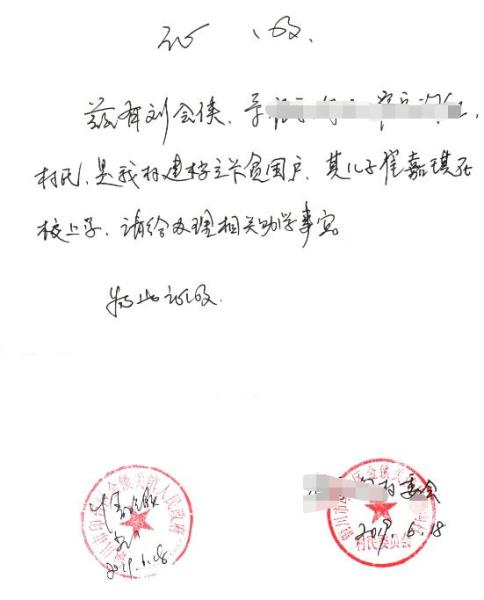 证明
兹有刘会侠,
村民,是我村建档立卡贫困户,其儿子崔嘉琪在
校上学,请给办理相关助学事宜
特此证明.
情况属实
2019.6.18
金锁关镇人民政府
村委会
2019.6.18
村民委员会